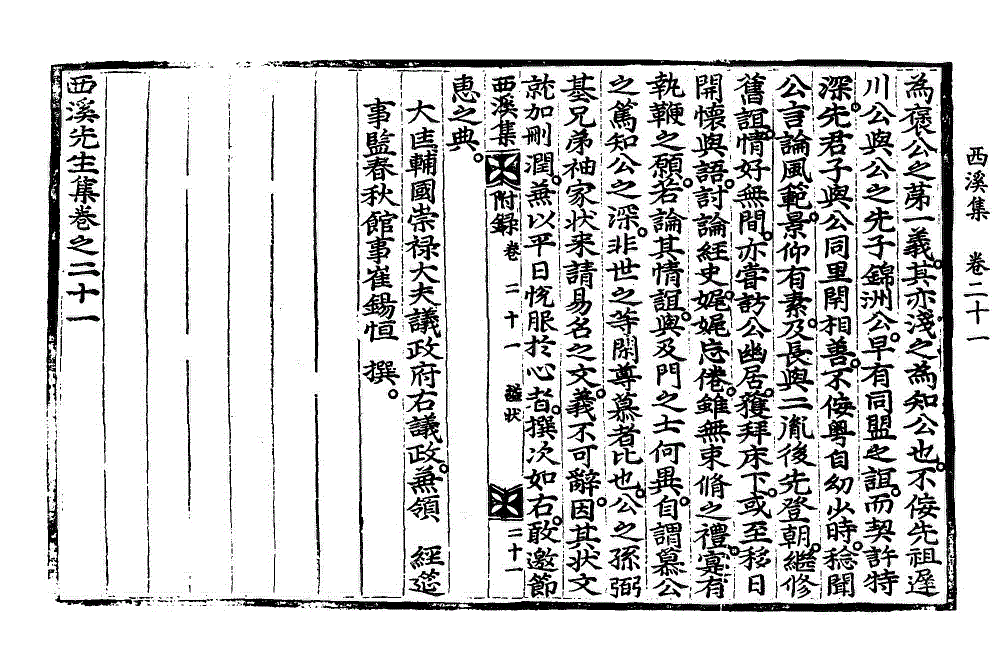 西溪集　卷二十一
為褒公之苐一義。其亦淺之為知公也。不侫先祖遲
川公與公之先子錦洲公。早有同盟之誼。而契許特
深。先君子與公同里閈相善。不侫粤自幼少時。稔聞
公言論風範。景仰有素。及長與二胤後先登朝。繼修
舊誼。情好無間。亦嘗訪公幽居。獲拜床下。或至移日
開懷與語。討論經史。娓娓忘倦。雖無束脩之禮。寔有
執鞭之願。若論其情誼。與及門之士何異。自謂慕公
之篤知公之深。非世之等閑尊慕者比也。公之孫弼
基兄弟袖家状来請易名之文。義不可辭。因其状文
就加刪潤。兼以平日恱服於心者。撰次如右。敢邀節
西溪集　附錄卷二十一　諡状　二十一
惠之典。
大匡輔國崇禄大夫議政府右議政。兼領　經筵
事監春秋館事崔錫恒　撰。
西溪先生集卷之二十一